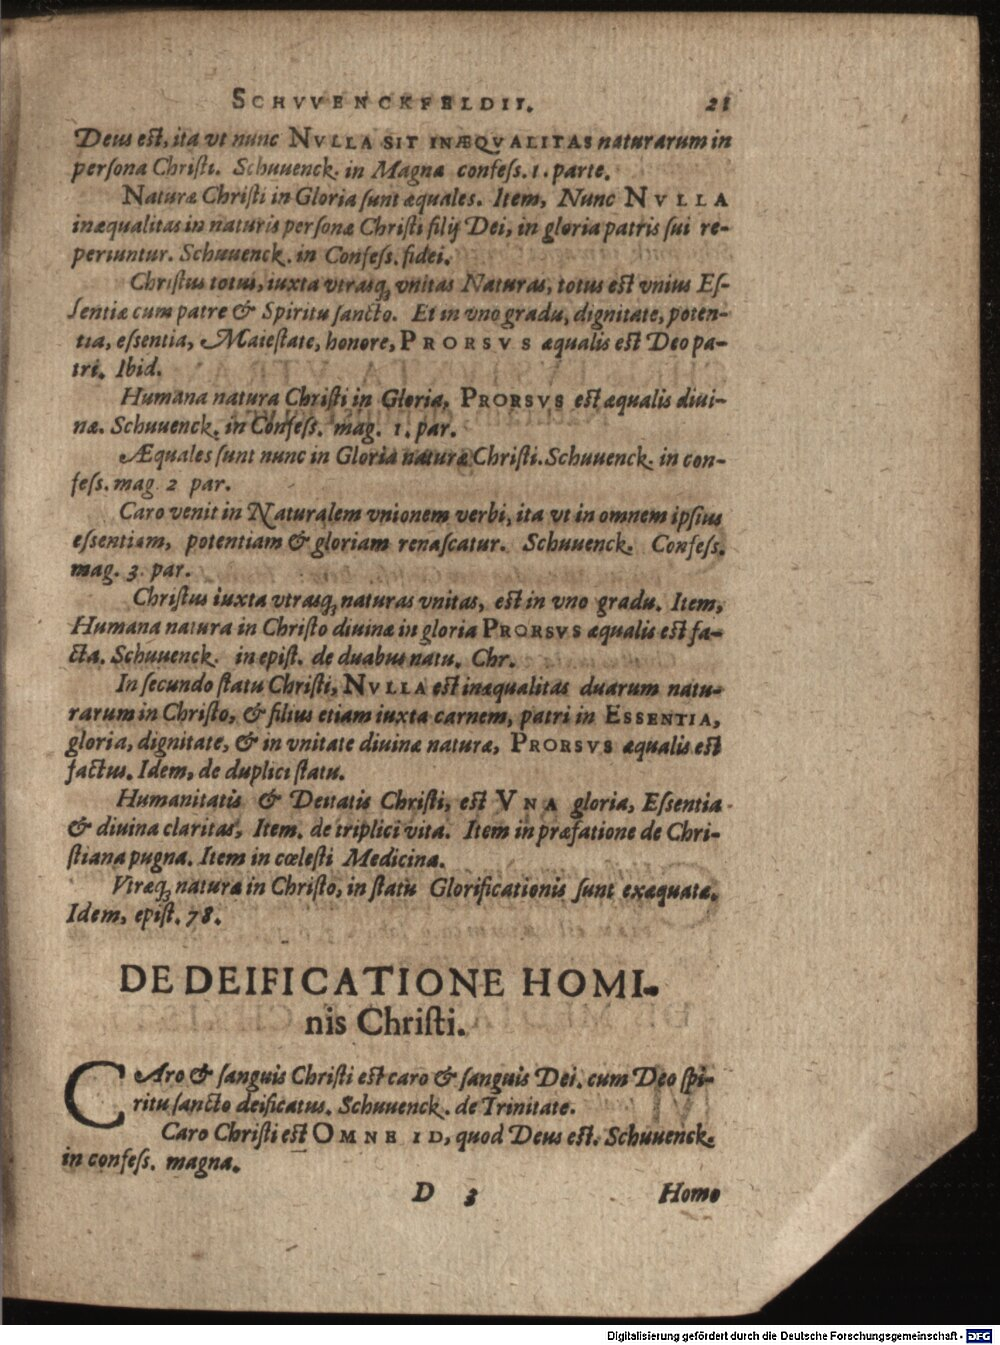 SCHVVENCKFELDII. 21
Deus eſt, ita vt nunc NVLLA SIT INÆQVALITAS naturarum in
perſona Christi. Schuuenck. in Magna confeſs. 1. parte.
Naturæ Chriſti in Gloria ſunt æquales. Item, Nunc NVLLA
inæqualitas in naturis perſonæ Chriſti filij Dei, in gloria patris ſui re-
periuntur. Schuuenck. in Confeſs. fidei.
Chriſtus totus, iuxta vtrasq; vnitas Naturas, totus eſt vnius Eſ-
ſentiæ cum patre & Spiritu ſancto. Et in vno gradu, dignitate, poten-
tia, eſsentia, Maieſtate, honore, PRORSVS æqualis eſt Deo pa-
tri. Ibid.
Humana natura Chriſti in Gloria, PRORSVS eſt æqualis diui-
næ. Schuuenck. in Confeſs. mag. 1. par.
Æquales ſunt nunc in Gloria naturæ Chriſti. Schuuenck. in con-
feſs. mag. 2 par.
Caro venit in Naturalem vnionem verbi, ita vt in omnem ipſius
eſsentiam, potentiam & gloriam renaſcatur. Schuuenck. Confeſs.
mag. 3. par.
Chriſtus iuxta vtrasq; naturas vnitas, eſt in vno gradu. Item,
Humana natura in Chriſto diuinæ in gloria PRORSVS æqualis eſt fa-
cta. Schuuenck. in epiſt. de duabus natu. Chr.
In ſecundo ſtatu Chriſti, NVLLA eſt inæqualitas duarum natu-
rarum in Chriſto, & filius etiam iuxta carnem, patri in ESSENTIA,
gloria, dignitate, & in vnitate diuinæ naturæ, PRORSVS æqualis eſt
factus. Idem, de duplici ſtatu.
Humanitatis & Deitatis Chriſti, eſt VNA gloria, Eſsentia
& diuina claritas, Item. de triplici vita. Item in præfatione de Chri-
ſtiana pugna. Item in cœleſti Medicina.
Vtræq; naturæ in Chriſto, in ſtatu Glorificationis ſunt exæquatæ.
Idem, epiſt. 78.
DE DEIFICATIONE HOMI-
nis Chriſti.
CAro & ſanguis Chriſti eſt caro & ſanguis Dei. cum Deo ſpi-
ritu ſancto deificatus. Schuuenck. de Trinitate.
Caro Chriſti eſt OMNE ID, quod Deus eſt. Schuuenck.
in confeſs. magna.
D 3 Homo
Digitalisierung gefördert durch die Deutsche Forschungsgemeinschaft - DFG